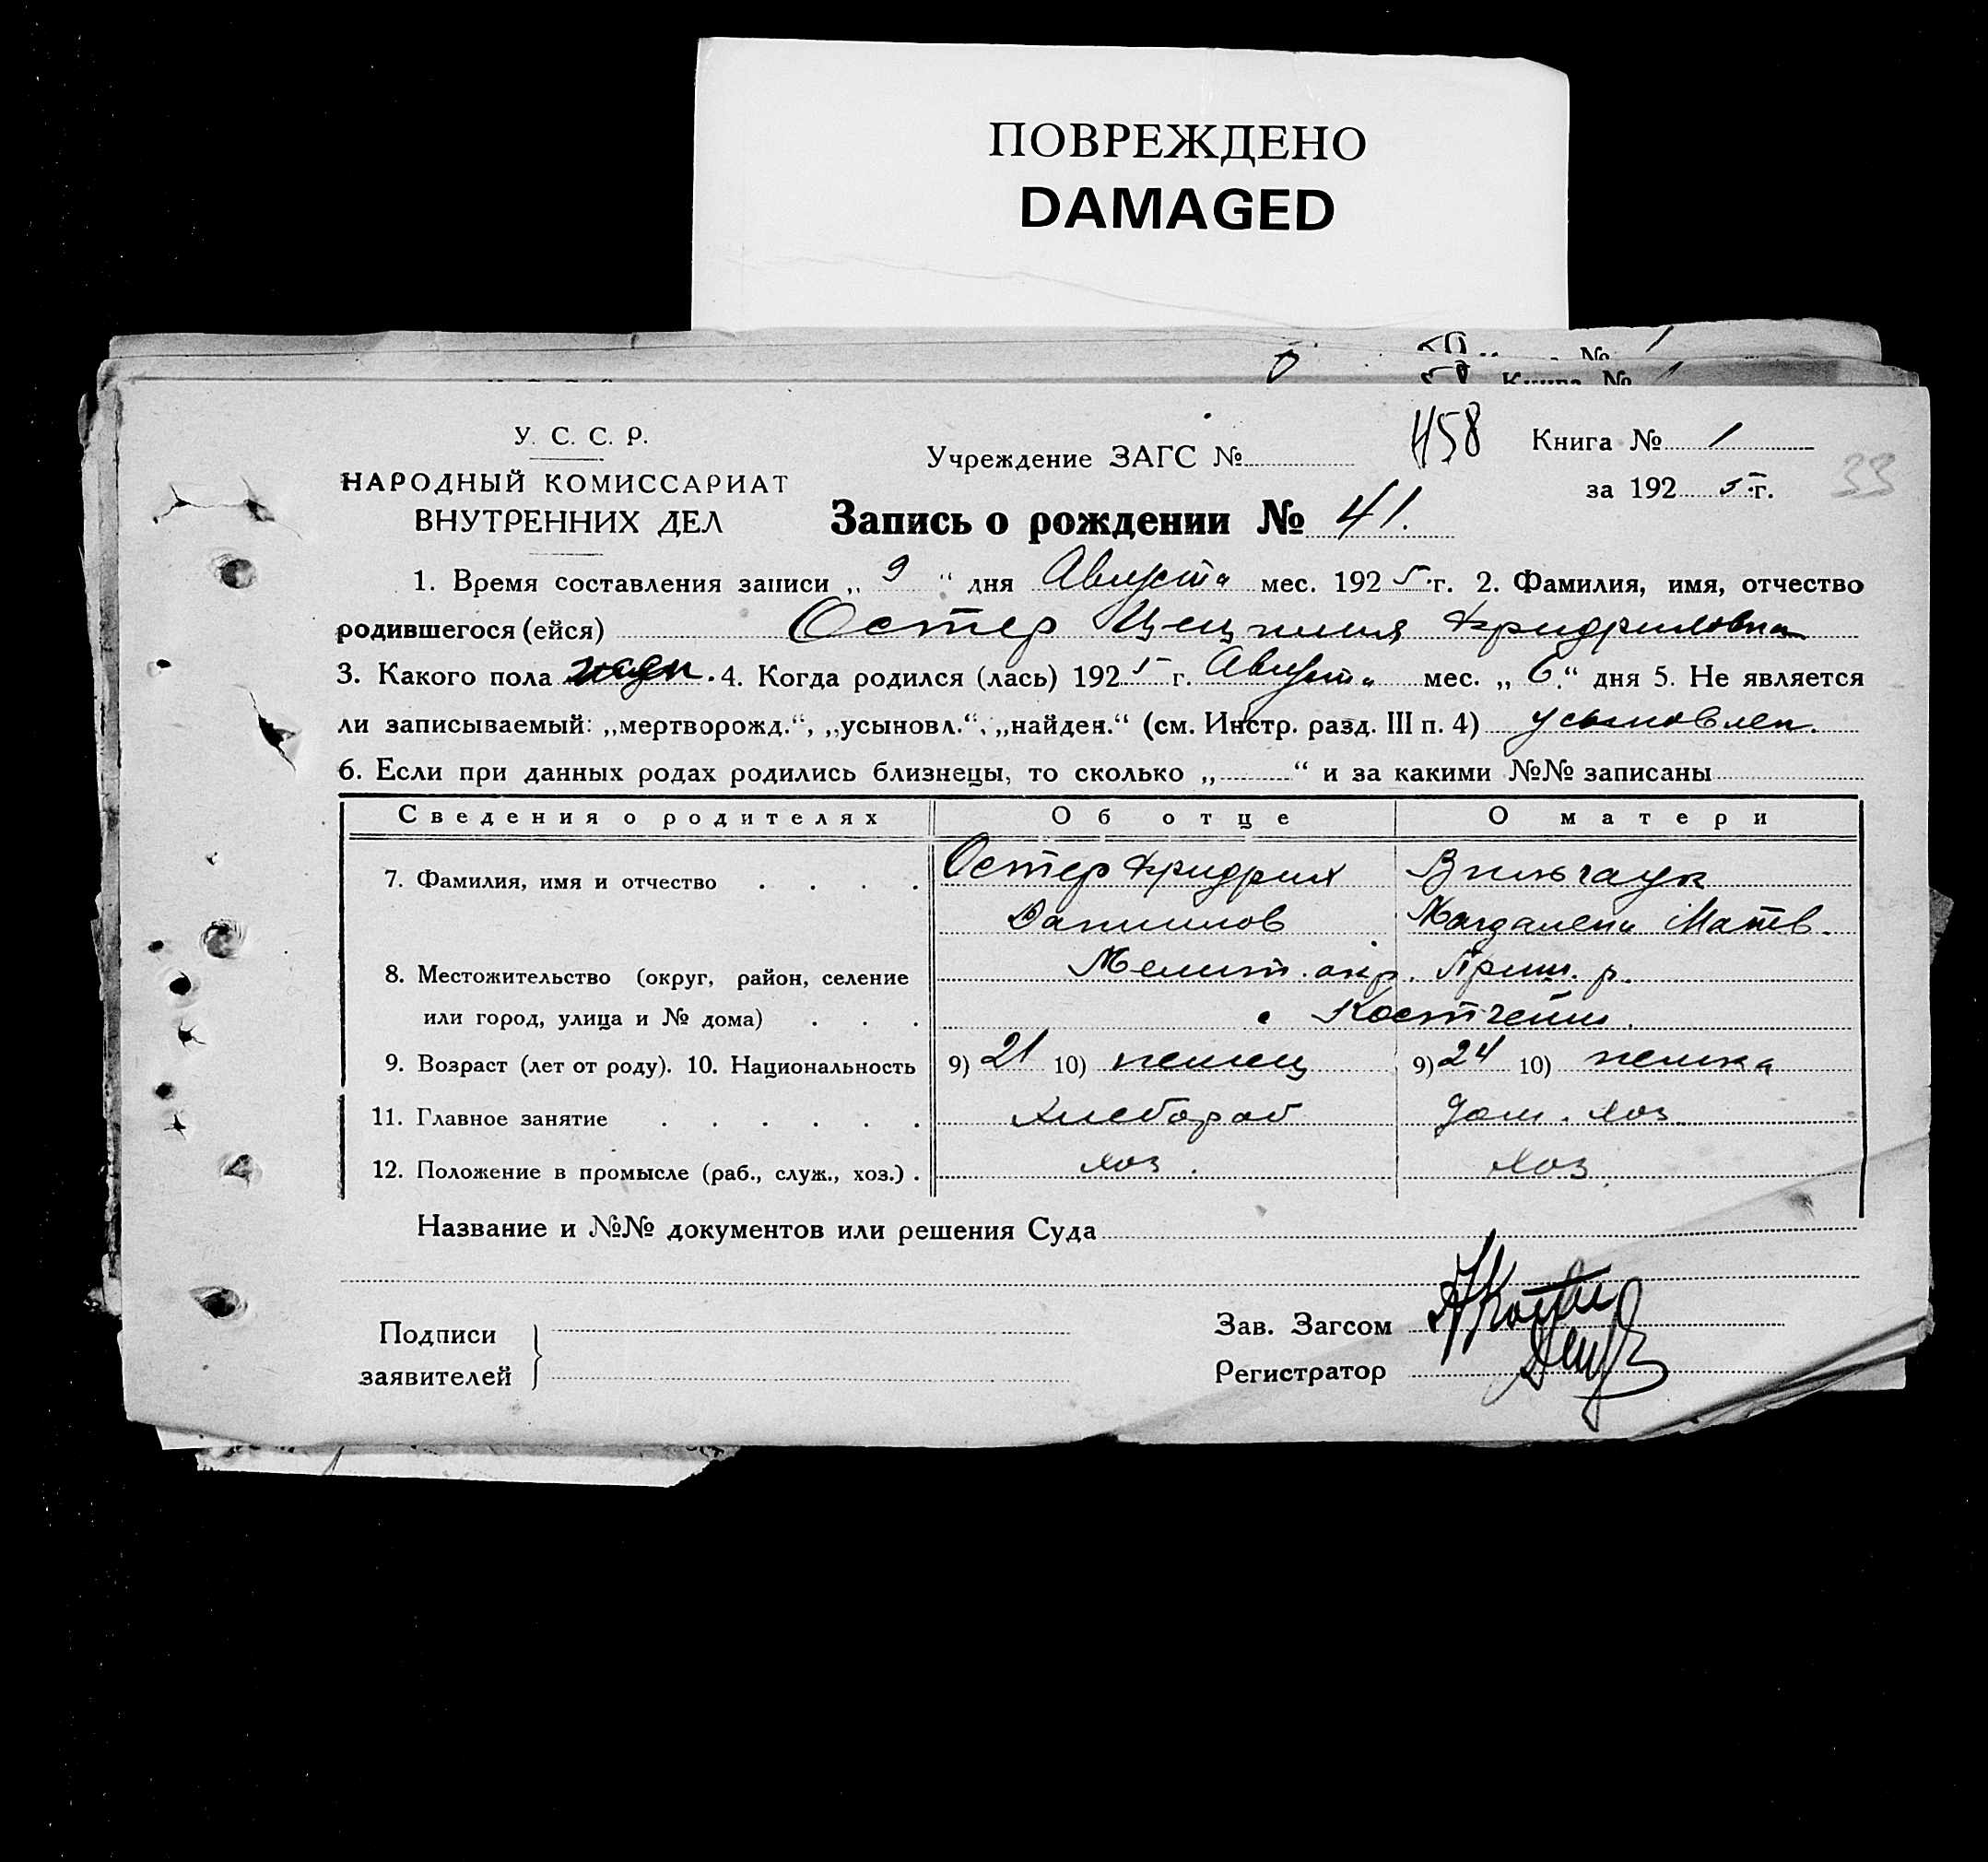 ПОВРЕЖДЕНО
DAMAGED
Книга № 1
У. С. С. Р.
НАРОДНЫЙ КОМИССАРИАТ
ВНУТРЕННИХ ДЕЛ
Учреждение ЗАГС №
458
Книга № 1
за 192 5 г.
33
Запись о рождении № 41.
1. Время составления записи „ 9 “ дня Августа мес. 192 5 г. 2. Фамилия, имя, отчество
родившегося (ейся) Остер Цецилия Фридриховна
3. Какого пола жен. 4. Когда родился (лась) 192 5 г. Августа мес. „ 6 “ дня 5. Не является
ли записываемый: „мертворожд.“, „усыновл.“, „найден.“ (см. Инстр. разд. III п. 4) усыновлен.
6. Если при данных родах родились близнецы, то сколько „ “ и за какими №№ записаны
Сведения о родителях Об отце О матери
7. Фамилия, имя и отчество Остер Фридрих Вильгаук
Данилов Магдалена Матв.
8. Местожительство (округ, район, селение Мелит. окр. Приш. р.
или город, улица и № дома)
9. Возраст (лет от роду). 10. Национальность 9) 21 10) немец 9) 24 10) немка
11. Главное занятие Хлебороб дом. хоз.
12. Положение в промысле (раб., служ., хоз.) хоз. хоз
Название и №№ документов или решения Суда
Подписи
заявителей
Зав. Загсом
Регистратор